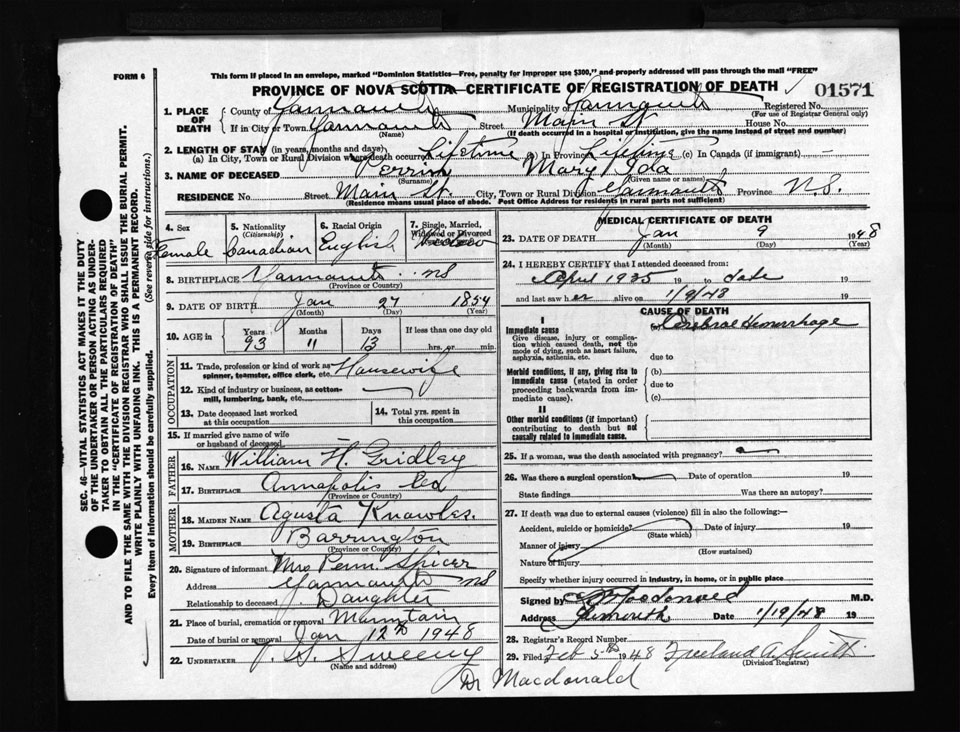 FORM 6
This form if placed in an envelope, marked "Dominion Statistics—Free, penalty for improper use $300," and properly addressed will pass through the mail "FREE"
PROVINCE OF NOVA SCOTIA—CERTIFICATE OF REGISTRATION OF DEATH
01571
1. PLACE OF DEATH
County of Yarmouth Municipality of Yarmouth Registered No.
(For use of Registrar General only)
If in City or Town Yarmouth Street Main St. House No.
(Name) (If death occurred in a hospital or institution, give the name instead of street and number)
2. LENGTH OF STAY (in years, months and days)
(a) In City, Town or Rural Division where death occurred Lifetime (b) In Province Lifetime (c) In Canada (if immigrant) —
3. NAME OF DECEASED Perrin Mary Ida
(Surname) (Given name or names)
RESIDENCE No. Street Main St. City, Town or Rural Division Yarmouth Province N.S.
(Residence means usual place of abode. Post Office Address for residents in rural parts not sufficient)
4. Sex 5. Nationality (Citizenship) 6. Racial Origin 7. Single, Married, Widowed or Divorced
Female Canadian English
8. BIRTHPLACE Yarmouth NS
(Province or Country)
9. DATE OF BIRTH Jan 27 1854
(Month) (Day) (Year)
10. AGE in Years Months Days If less than one day old
93 11 13 hrs. or min.
OCCUPATION
11. Trade, profession or kind of work as spinner, teamster, office clerk, etc. Housewife
12. Kind of industry or business, as cotton-mill, lumbering, bank, etc.
13. Date deceased last worked at this occupation 14. Total yrs. spent in this occupation
15. If married give name of wife or husband of deceased
FATHER
16. NAME William H. Gridley
17. BIRTHPLACE Annapolis Co
(Province or Country)
MOTHER
18. MAIDEN NAME Agusta Knowles.
19. BIRTHPLACE Barrington
(Province or Country)
20. Signature of informant Mrs Penn. Spicer
Address Yarmouth NS
Relationship to deceased Daughter
21. Place of burial, cremation or removal Mountain
Date of burial or removal Jan 12th 1948
22. UNDERTAKER Sweeny
(Name and address)
MEDICAL CERTIFICATE OF DEATH
23. DATE OF DEATH Jan 9 1948
(Month) (Day) (Year)
24. I HEREBY CERTIFY that I attended deceased from:
April 1935 to date 19
and last saw her alive on 1/9/48 19
CAUSE OF DEATH
I
Immediate cause (a) Cerebral Hemorrhage
Give disease, injury or complication which caused death, not the mode of dying, such as heart failure, asphyxia, asthenia, etc.
due to
Morbid conditions, if any, giving rise to immediate cause (stated in order proceeding backwards from immediate cause).
(b)
due to
(c)
II
Other morbid conditions (if important) contributing to death but not causally related to immediate cause.
25. If a woman, was the death associated with pregnancy?
26. Was there a surgical operation Date of operation 19
State findings Was there an autopsy?
27. If death was due to external causes (violence) fill in also the following:—
Accident, suicide or homicide? Date of injury 19
(State which)
Manner of injury
(How sustained)
Nature of injury
Specify whether injury occurred in industry, in home, or in public place
Signed by Macdonald M.D.
Address Yarmouth Date 1/19/48 19
28. Registrar's Record Number
29. Filed Feb 5th 1948 Freeland A. Smith
(Division Registrar)
Dr Macdonald
SEC. 46—VITAL STATISTICS ACT MAKES IT THE DUTY
OF THE UNDERTAKER OR PERSON ACTING AS UNDER-
TAKER TO OBTAIN ALL THE PARTICULARS REQUIRED
IN THE "CERTIFICATE OF REGISTRATION OF DEATH"
AND TO FILE THE SAME WITH THE DIVISION REGISTRAR WHO SHALL ISSUE THE BURIAL PERMIT.
WRITE PLAINLY WITH UNFADING INK. THIS IS A PERMANENT RECORD.
Every item of information should be carefully supplied. (See reverse side for instructions.)